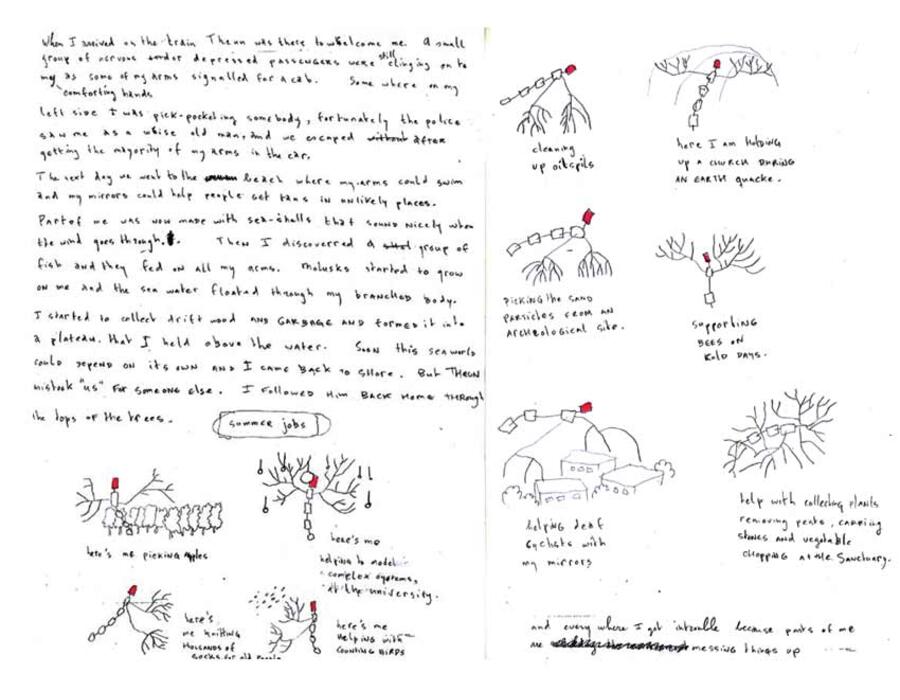 When I arrived on the train Theun was there to welcome me. A small
group of nervous and or depressed passengers were still clinging on to
my as some of my arms signalled for a cab. Some where on my
comforting hands
left side I was pick-pocketing somebody, fortunately the police
saw me as a whise old man, and we escaped without after
getting the majority of my arms in the car.
The next day we went to the beach where my arms could swim
and my mirrors could help people get tans in unlikely places.
Part of me was now made with sea-shalls that sound nicely when
the wind goes through. Then I discoverred a group of
fish and they fed on all my arms. Molusks started to grow
on me and the sea water floated through my branched body.
I started to collect drift wood AND GARBAGE AND FORMED IT INTO
a plateau, that I held above the water. Soon this seaworld
could DEPEND on its own AND I CAME BACK TO SHORE. BUT THEUN
mistook "us" FOR SOMEONE ELSE. I FOLLOWED HIM BACK HOME THROUGH
the tops of the trees.
summer jobs
here's me picking apples
here's me
helping to model
complex systems,
at the university.
here's
me knitting
thousands of
socks for old people
here's me
HELPING WITH
COUNTING BIRDS
cleaning
up oilspils
here I am holding
up a CHURCH DURING
AN EARTH quacke.
PICKING the SAND
PARTICLES FROM AN
ARCHEOLOGICAL SITE.
SUPPORTING
BEES ON
KOLD DAYS.
HELPING DEAF
CYCLISTS WITH
MY MIRRORS
help with collecting plants
removing peats, carring
stones and vegatable
chopping at the Sanctuary.
and every where I got introuble because parts of me
are messing things up